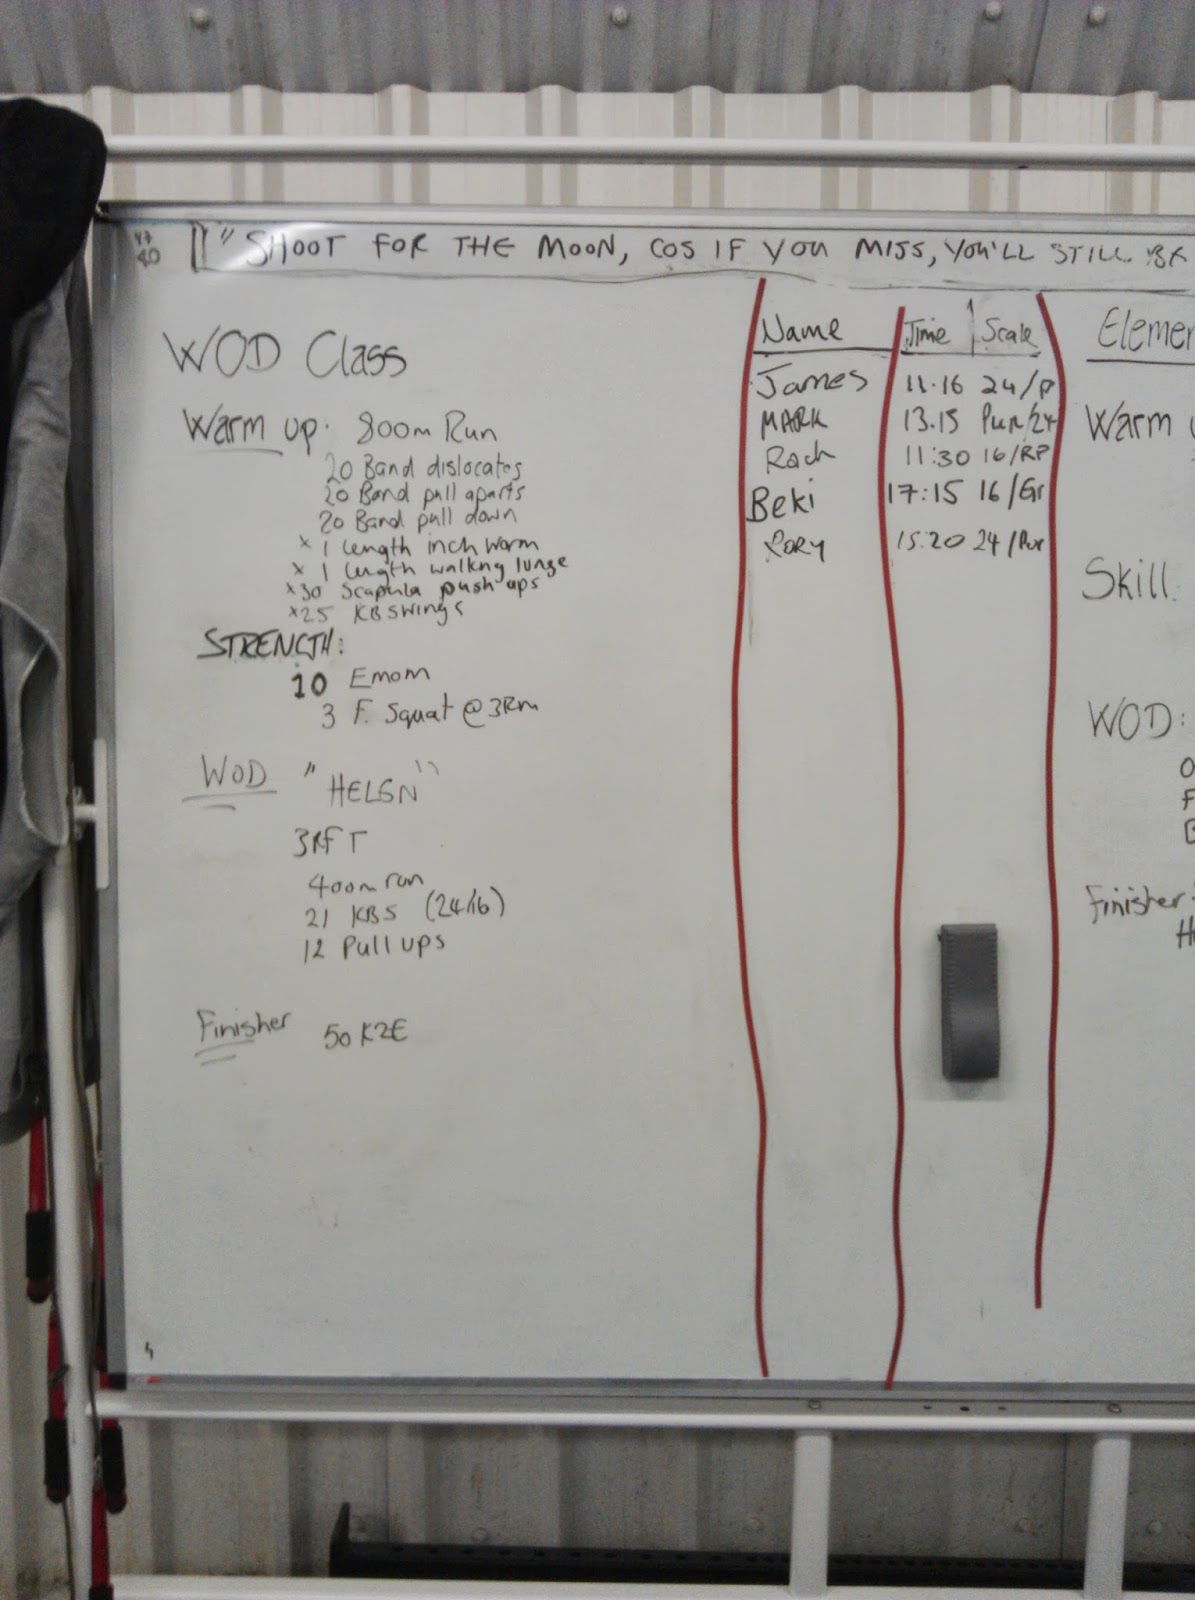 47
40
" SHOOT FOR THE MOON, COS IF YOU MISS, YOU'LL STILL BE
WOD Class
Warm up: 800m Run
20 Band dislocates
20 Band pull aparts
20 Band pull down
x 1 Length inch worm
x 1 Length walkng lunge
x30 Scapula push ups
x25 KB swings
STRENGTH:
10 Emom
3 F. Squat @ 3Rm
WOD "HELEN"
3RFT
400m run
21 KBS (24/16)
12 Pull ups
Finisher 50 K2E
Name Time Scale
James 11.16 24/P
MARK 13.15 Pur/24
Rach 11:30 16/RP
Beki 17:15 16/Gr
Rory 15:20 24/Pur
Elemen
Warm u
Skill
WOD:
O
F
B
Finisher